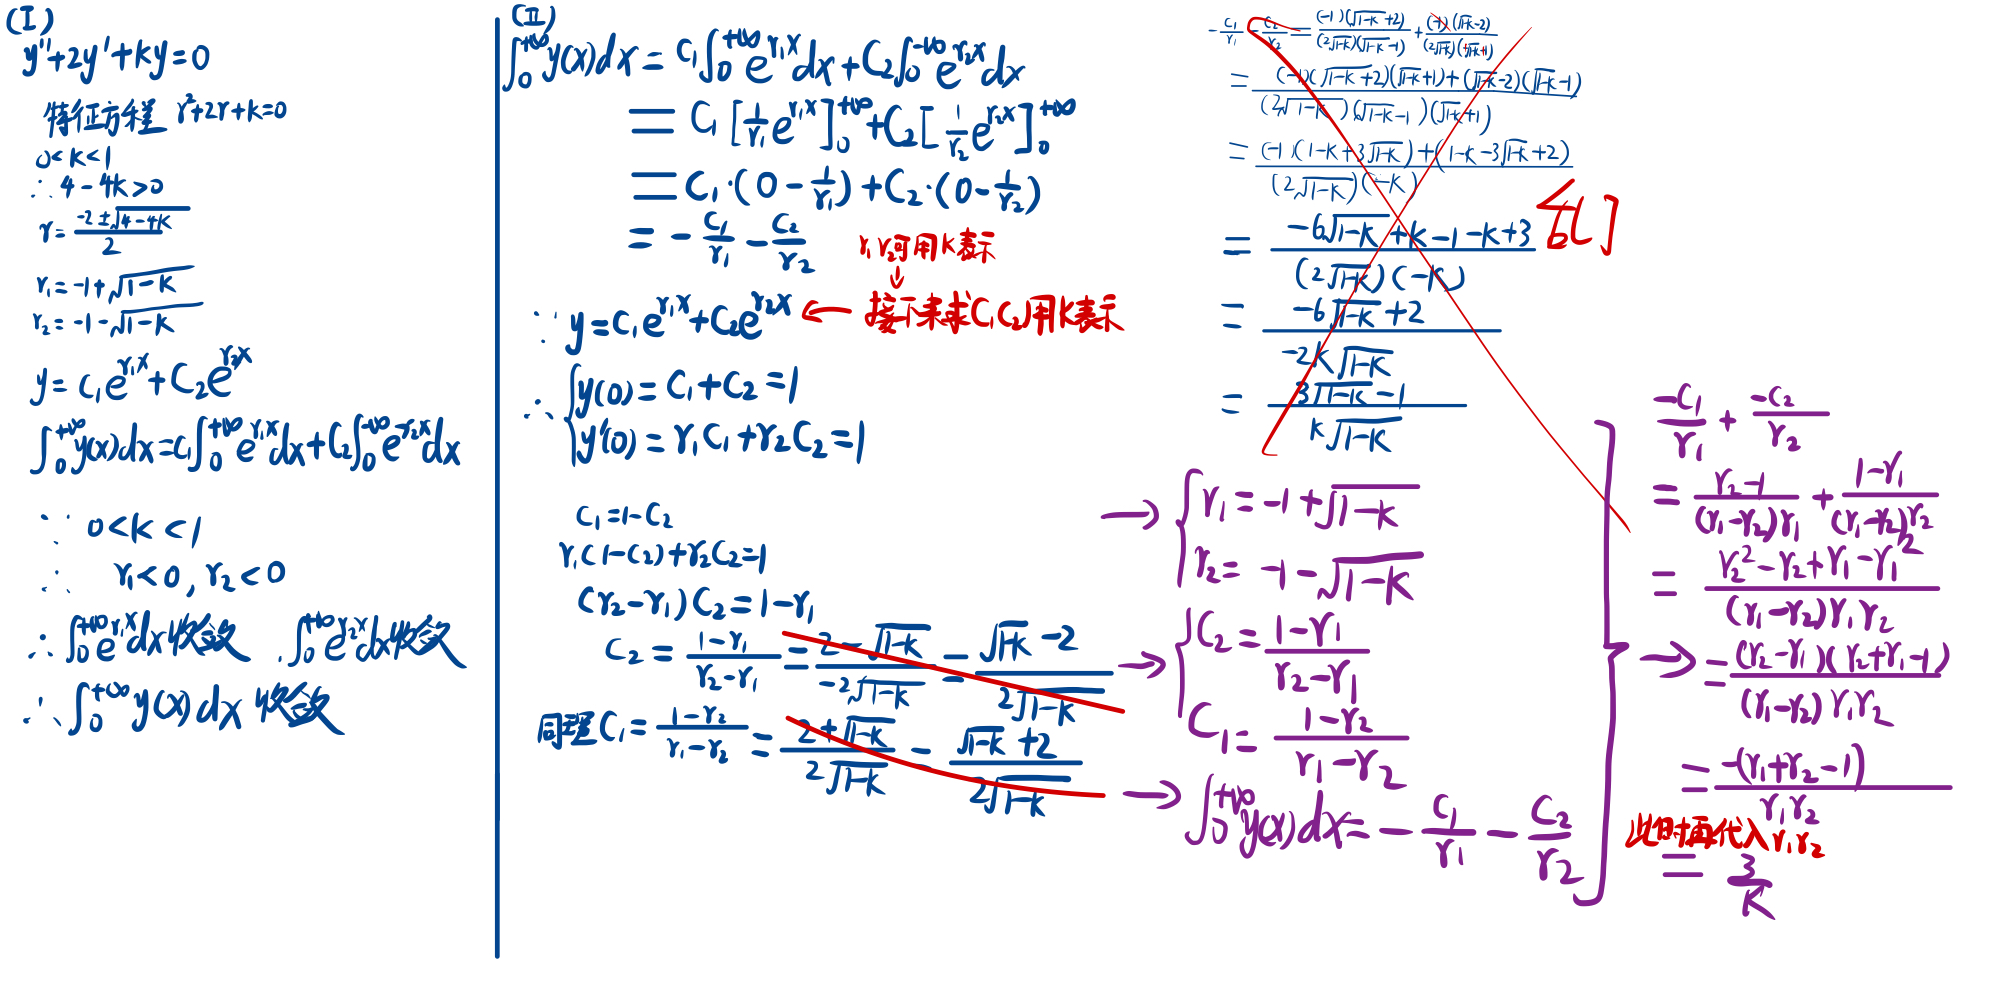 (I)
y''+2y'+ky=0
特征方程 r²+2r+k=0
0<k<1
∴ 4-4k>0
r=(-2±√(4-4k))/2
r₁=-1+√(1-k)
r₂=-1-√(1-k)
y=C₁e^(r₁x)+C₂e^(r₂x)
∫₀^(+∞) y(x)dx=C₁∫₀^(+∞) e^(r₁x)dx+C₂∫₀^(-∞) e^(-r₂x)dx
∵ 0<k<1
∴ r₁<0, r₂<0
∴ ∫₀^(+∞) e^(r₁x)dx收敛 . ∫₀^(+∞) e^(r₂x)dx收敛
∴ ∫₀^(+∞) y(x)dx 收敛
(II)
∫₀^(+∞) y(x)dx=C₁∫₀^(+∞) e^(r₁x)dx+C₂∫₀^(-∞) e^(r₂x)dx
=C₁[1/r₁ e^(r₁x)]₀^(+∞)+C₂[1/r₂ e^(r₂x)]₀^(+∞)
=C₁·(0-1/r₁)+C₂·(0-1/r₂)
=-C₁/r₁-C₂/r₂
r₁ r₂可用k表示
↓
∵ y=C₁e^(r₁x)+C₂e^(r₂x) ← 接下来求C₁C₂用k表示
∴ {y(0)=C₁+C₂=1
y'(0)=r₁C₁+r₂C₂=1
C₁=1-C₂
r₁(1-C₂)+r₂C₂=1
(r₂-r₁)C₂=1-r₁
C₂=(1-r₁)/(r₂-r₁)=(2-√(1-k))/(-2√(1-k))=(√(1-k)-2)/(2√(1-k))
同理C₁=(1-r₂)/(r₁-r₂)=(2+√(1-k))/(2√(1-k))=(√(1-k)+2)/(2√(1-k))
-C₁/r₁-C₂/r₂=(-1)(√(1-k)+2)/((2√(1-k))(√(1-k)-1))+(+1)(√(1-k)-2)/((2√(1-k))(√(1-k)+1))
=((-1)(√(1-k)+2)(√(1-k)+1)+(√(1-k)-2)(√(1-k)-1))/((2√(1-k))(√(1-k)-1)(√(1-k)+1))
=((-1)(1-k+3√(1-k))+(1-k-3√(1-k)+2))/((2√(1-k))(-k))
=(-6√(1-k)+k-1-k+3)/((2√(1-k))(-k))
乱]
=(-6√(1-k)+2)/(-2k√(1-k))
=(3√(1-k)-1)/(k√(1-k))
→ {r₁=-1+√(1-k)
r₂=-1-√(1-k)
→ {C₂=(1-r₁)/(r₂-r₁)
C₁=(1-r₂)/(r₁-r₂)
→ ∫₀^(+∞) y(x)dx=-C₁/r₁-C₂/r₂
} →
-C₁/r₁+-C₂/r₂
=(r₂-1)/((r₁-r₂)r₁)+(1-r₁)/((r₁-r₂)r₂)
=(r₂²-r₂+r₁-r₁²)/((r₁-r₂)r₁r₂)
=(r₂-r₁)(r₂+r₁-1)/((r₁-r₂)r₁r₂)
=-(r₁+r₂-1)/(r₁r₂)
此时再代入r₁r₂
=3/k